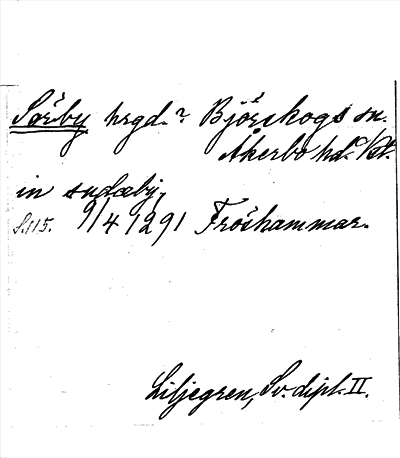 Sörby hrgd.? Björskogs sn.
Åkerbo hd. Vstm.
in sudæby,
S. 115. 9/4 1291 Fröshammar.
Liljegren, Sv. dipl. II.